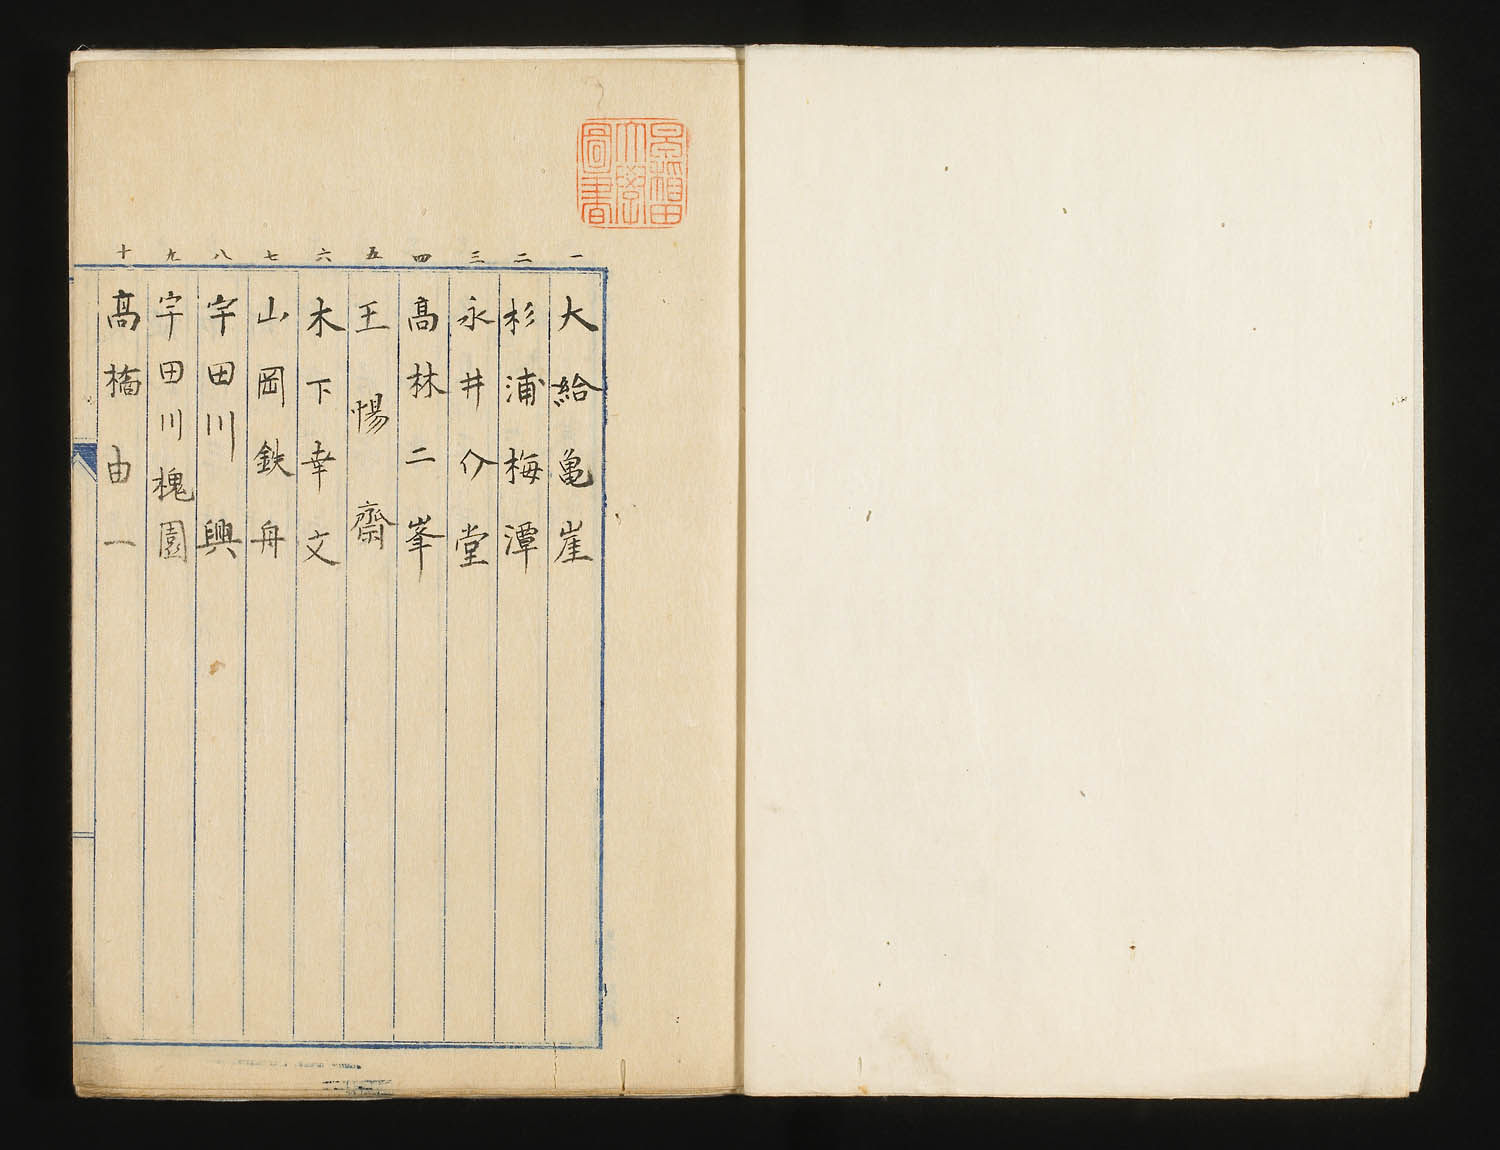 早稲田大學圖書
一 大給亀崖
二 杉浦梅潭
三 永井介堂
四 高林二峯
五 王惕齋
六 木下幸文
七 山岡鉄舟
八 宇田川興
九 宇田川槐園
十 高橋由一